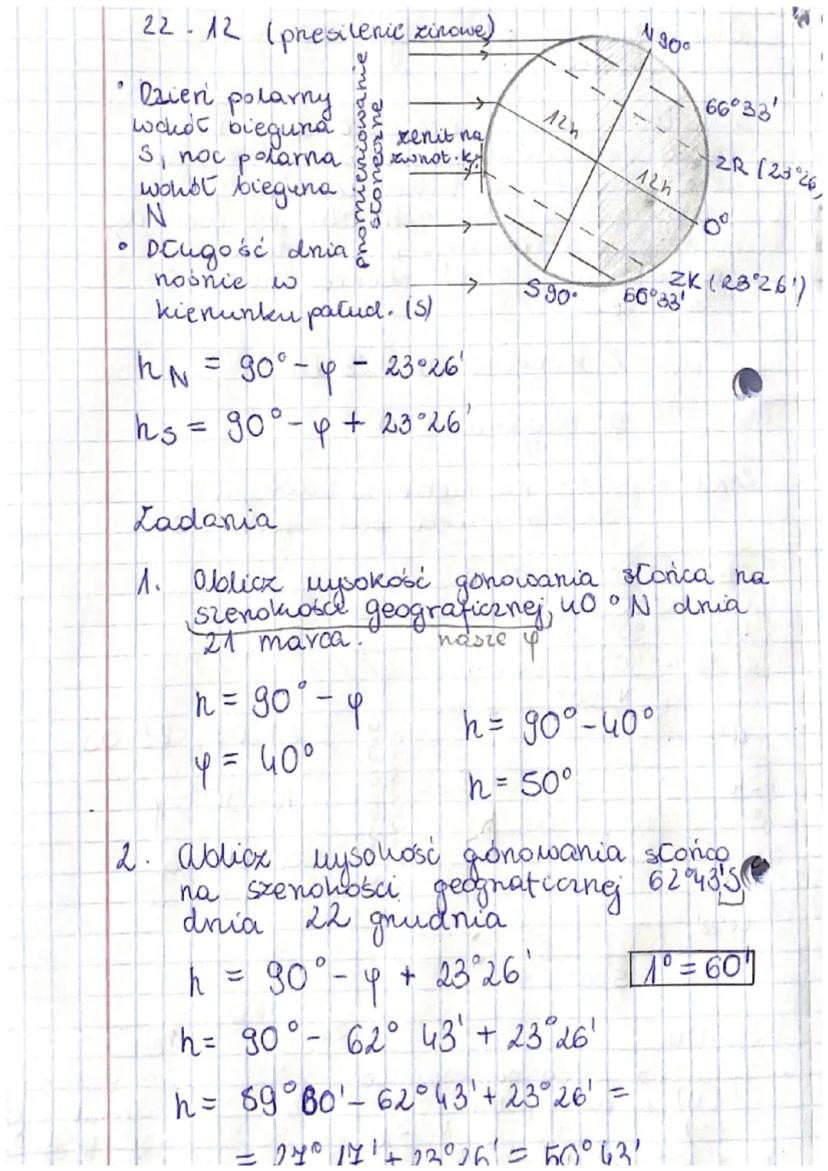 22 - 12 (przesilenie zimowe)
N 90°
66°33'
ZR (23°26,
12h
12h
0°
ZK (23°26')
66°33'
S 90°
promieniowanie
słoneczne
zenit na
zwrot. k.
• Dzień polarny
wokół bieguna
S, noc polarna
wokół bieguna
N
• Długość dnia
rośnie w
kierunku połud. (S)
h N = 90° - φ - 23°26'
h s = 90° - φ + 23°26'
Zadania
1. Oblicz wysokość górowania słońca na
szerokości geograficznej, 40°N dnia
21 marca. nasze φ
h = 90° - φ
φ = 40°
h = 90° - 40°
h = 50°
2. Oblicz wysokość górowania słońca
na szerokości geograficznej 62°43'S
dnia 22 grudnia
h = 90° - φ + 23°26'
1° = 60'
h = 90° - 62° 43' + 23°26'
h = 89°60' - 62°43' + 23°26' =
= 27° 17' + 23°26' = 50°43'